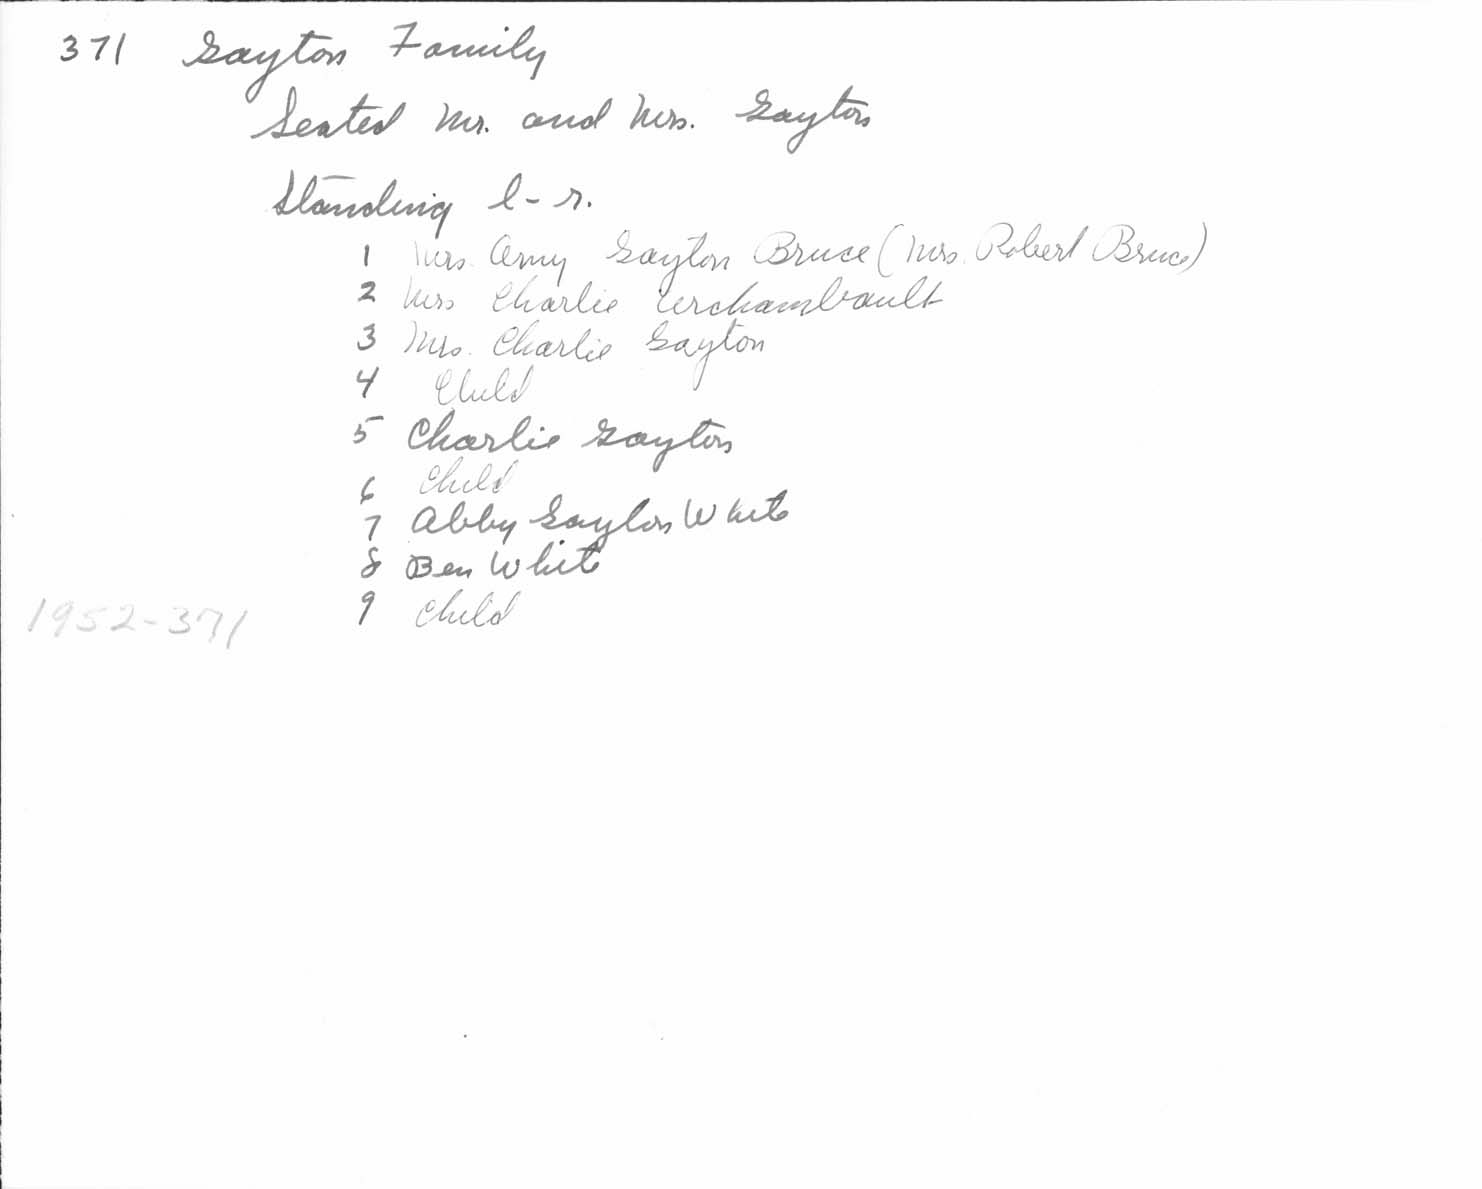 371 Gayton Family
Seated Mr. and Mrs. Gayton
Standing l-r.
1 Mrs. Amy Gayton Bruce (Mrs. Robert Bruce)
2 Mrs Charlie Archambault
3 Mrs. Charlie Gayton
4 Child
5 Charlie Gayton
6 Child
7 Abby Gayton White
8 Ben White
9 Child
1952-371